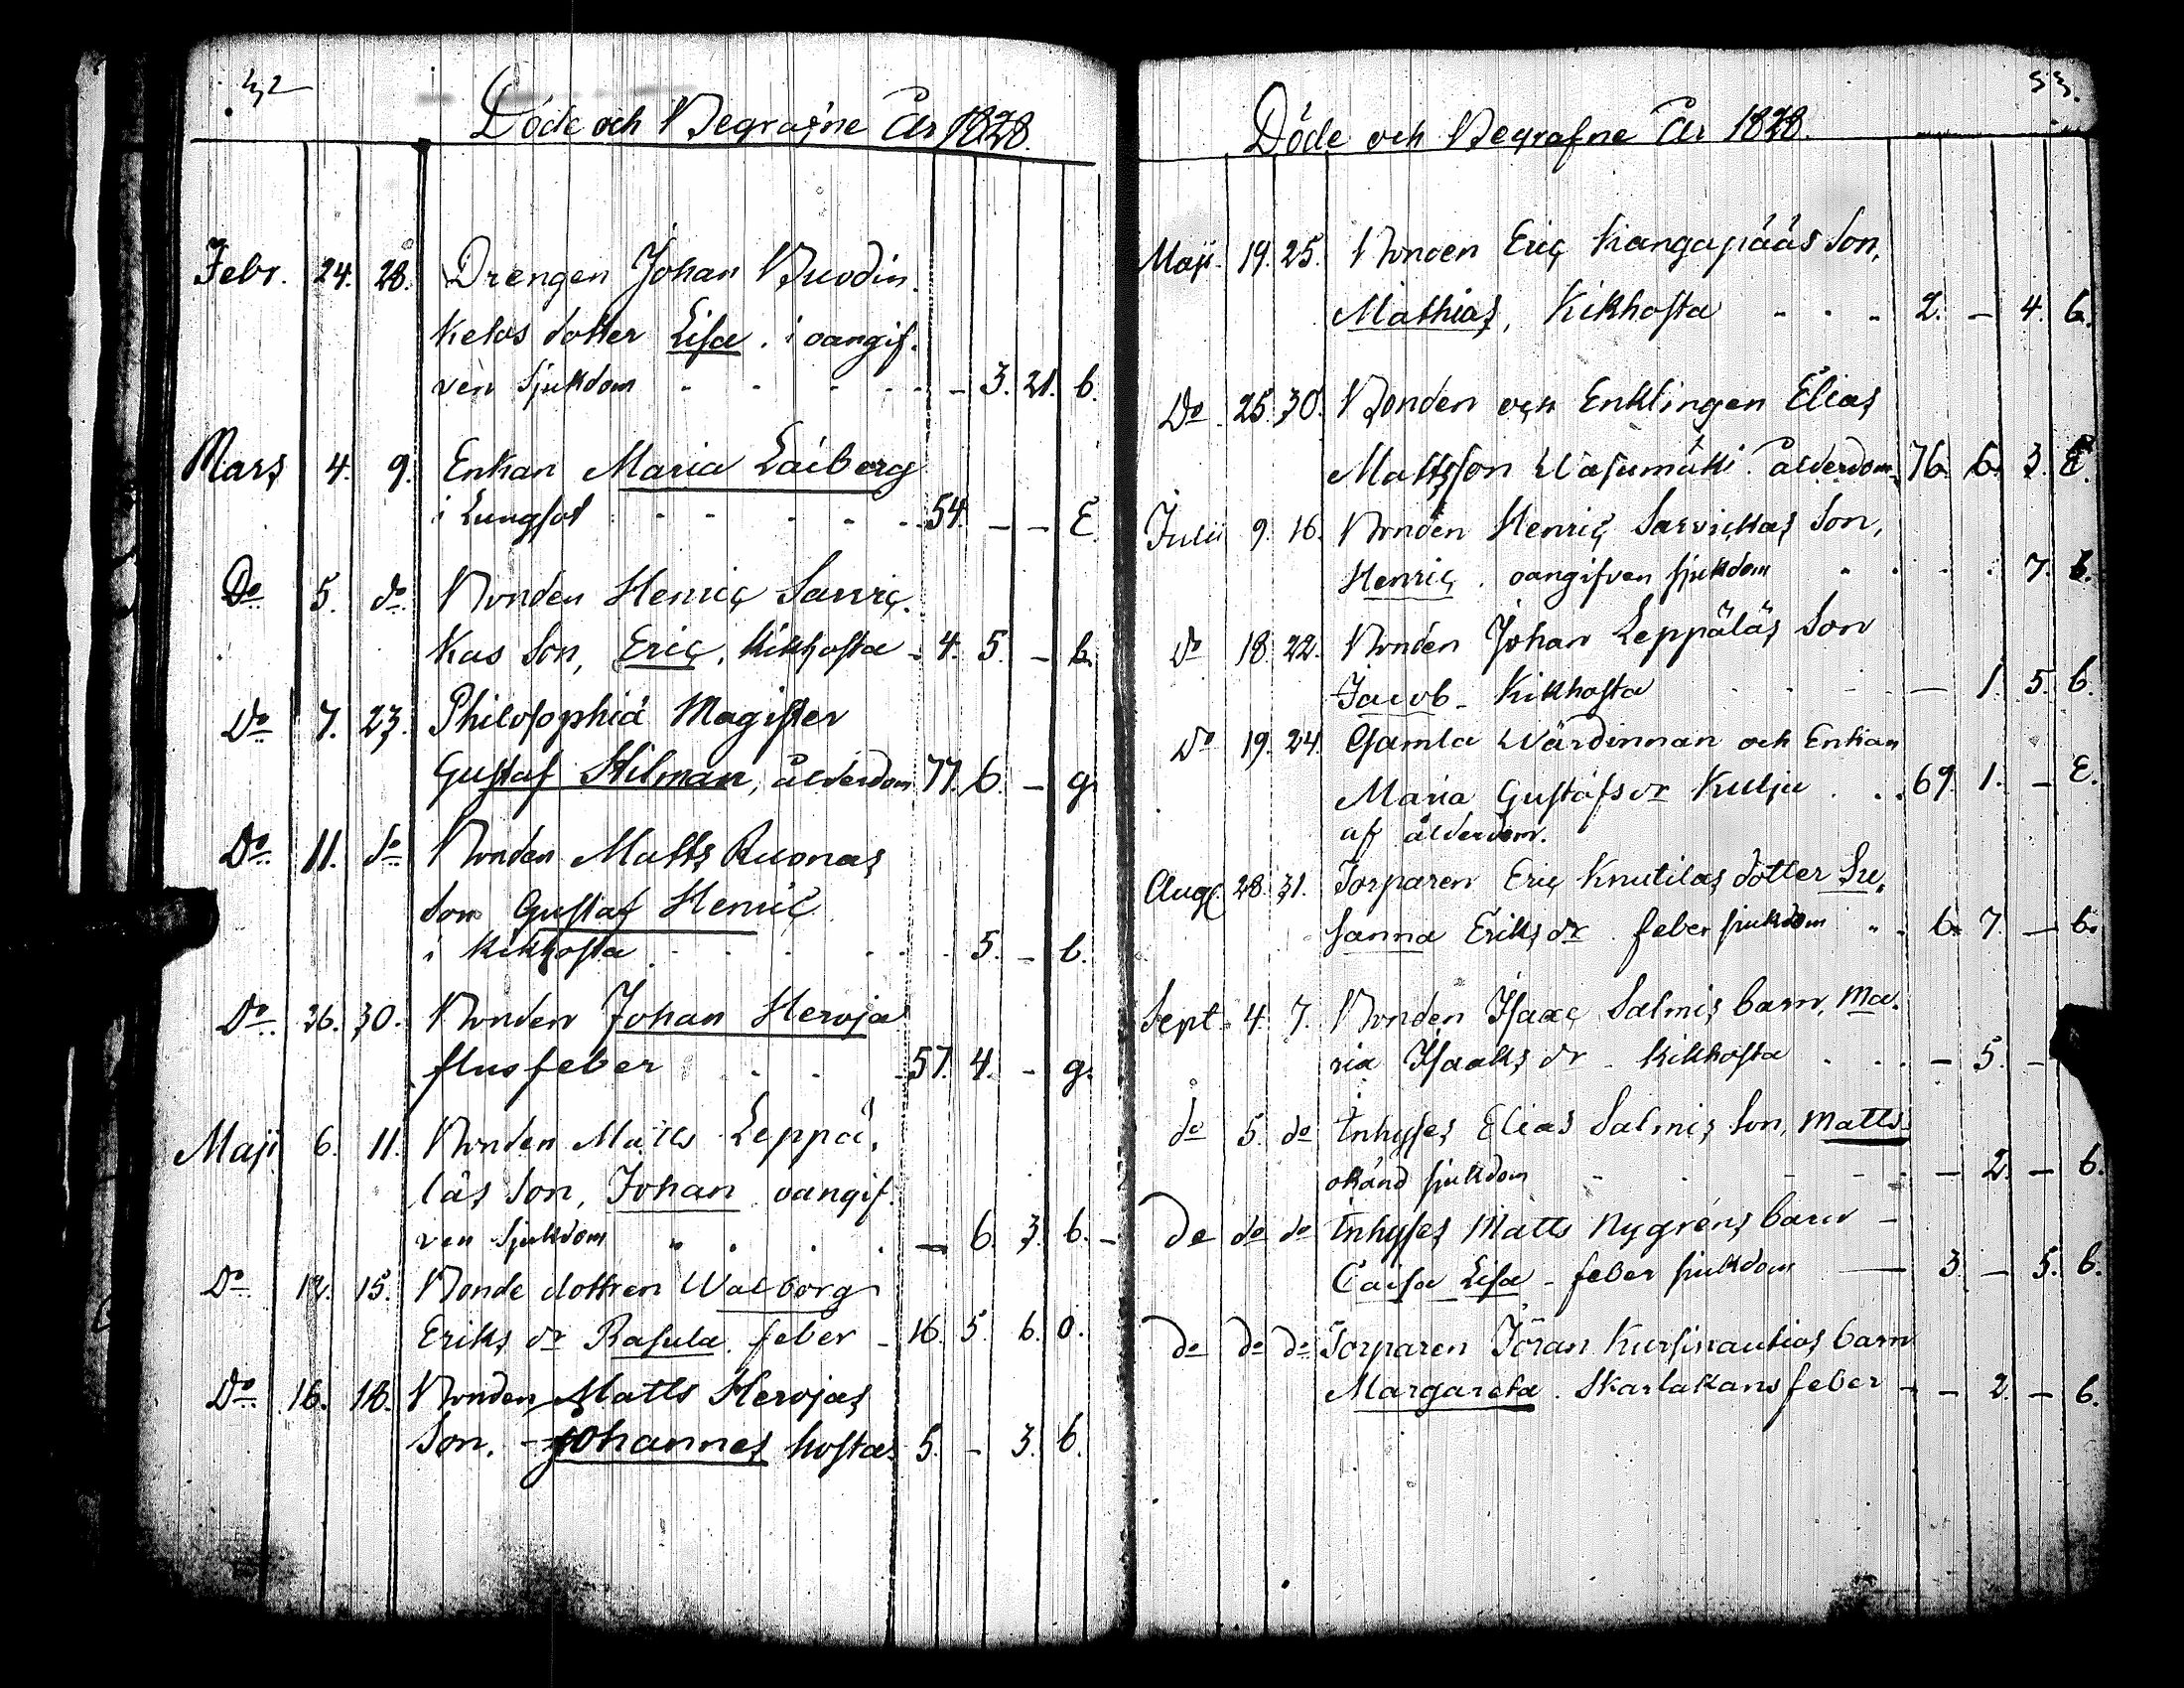 32
Döde och Begrafne År 1828.
Febr. 24. 28. Drengen Johan Buodin-
kelas dotter Lisa. i oangif-
ven sjukdom - - - - - 3. 21. b.
Mars 4. 9. Enkan Maria Laiberg
i Lungsot - - - - - 54. - - E.
Do 5. do Bonden Henric Sarvic-
kas Son, Eric, Kikhosta - 4. 5. - b.
Do 7. 23. Philosophiä Magister
Gustaf Hilman, ålderdom 77. 6. - g.
Do 11. do Bonden Matts Ruonas
Son Gustaf Henric
i Kikhosta - - - - - 5. - b.
Do 26. 30. Bonden Johan Hervoja
flussfeber - - - 57. 4. - g.
Maji 6. 11. Bonden Matts Leppä-
läs Son, Johan oangif-
ven sjukdom - 6. 3. b.
Do 12. 15. Bonde dottren Walborg
Eriks dr Rasula. feber - 16. 5. 6. o.
Do 16. 18. Bonden Matts Hervojas
Son. Johannes hosta. 5. - 3. b.
33.
Döde och Begrafne År 1828.
Maji 19. 25. Bonden Eric Kangapääs Son,
Mathias, Kikhosta - - - 2. - 4. b.
Do 25. 30. Bonden och Enklingen Elias
Mattsson Wasumäki. ålderdom 76. 6. 3. E.
Julii 9. 16. Bonden Henric Sarvickas Son,
Henric. oangifven sjukdom - - - 7. b.
Do 18 22. Bonden Johan Leppäläs Son
Jacob - Kikhosta - - - - 1. 5. b.
Do 19. 24. Gamla Wärdinnan och Enkan
Maria Gustafs dr Kulju . . 69. 1. - E.
af ålderdom.
Aug. 28. 31. Torparen Eric Knutilas dotter Su-
sanna Eriks dr. feber sjukdom - - 6. 7. - b.
Sept. 4. 7. Bonden Isaac Salmis barn, Ma-
ria Isaaks dr - Kikhosta . . . - 5. -
do 5. do Inhyses Elias Salmis Son, Matts
okänd sjukdom - - - - - 2. - b.
do do do Inhyses Matts Nygréns barn -
Caisa Lisa - feber sjukdom - 3 - 5. b.
do do do Torparen Jöran Kursinautios barn
Margareta. Skarlakansfeber - - 2. - b.